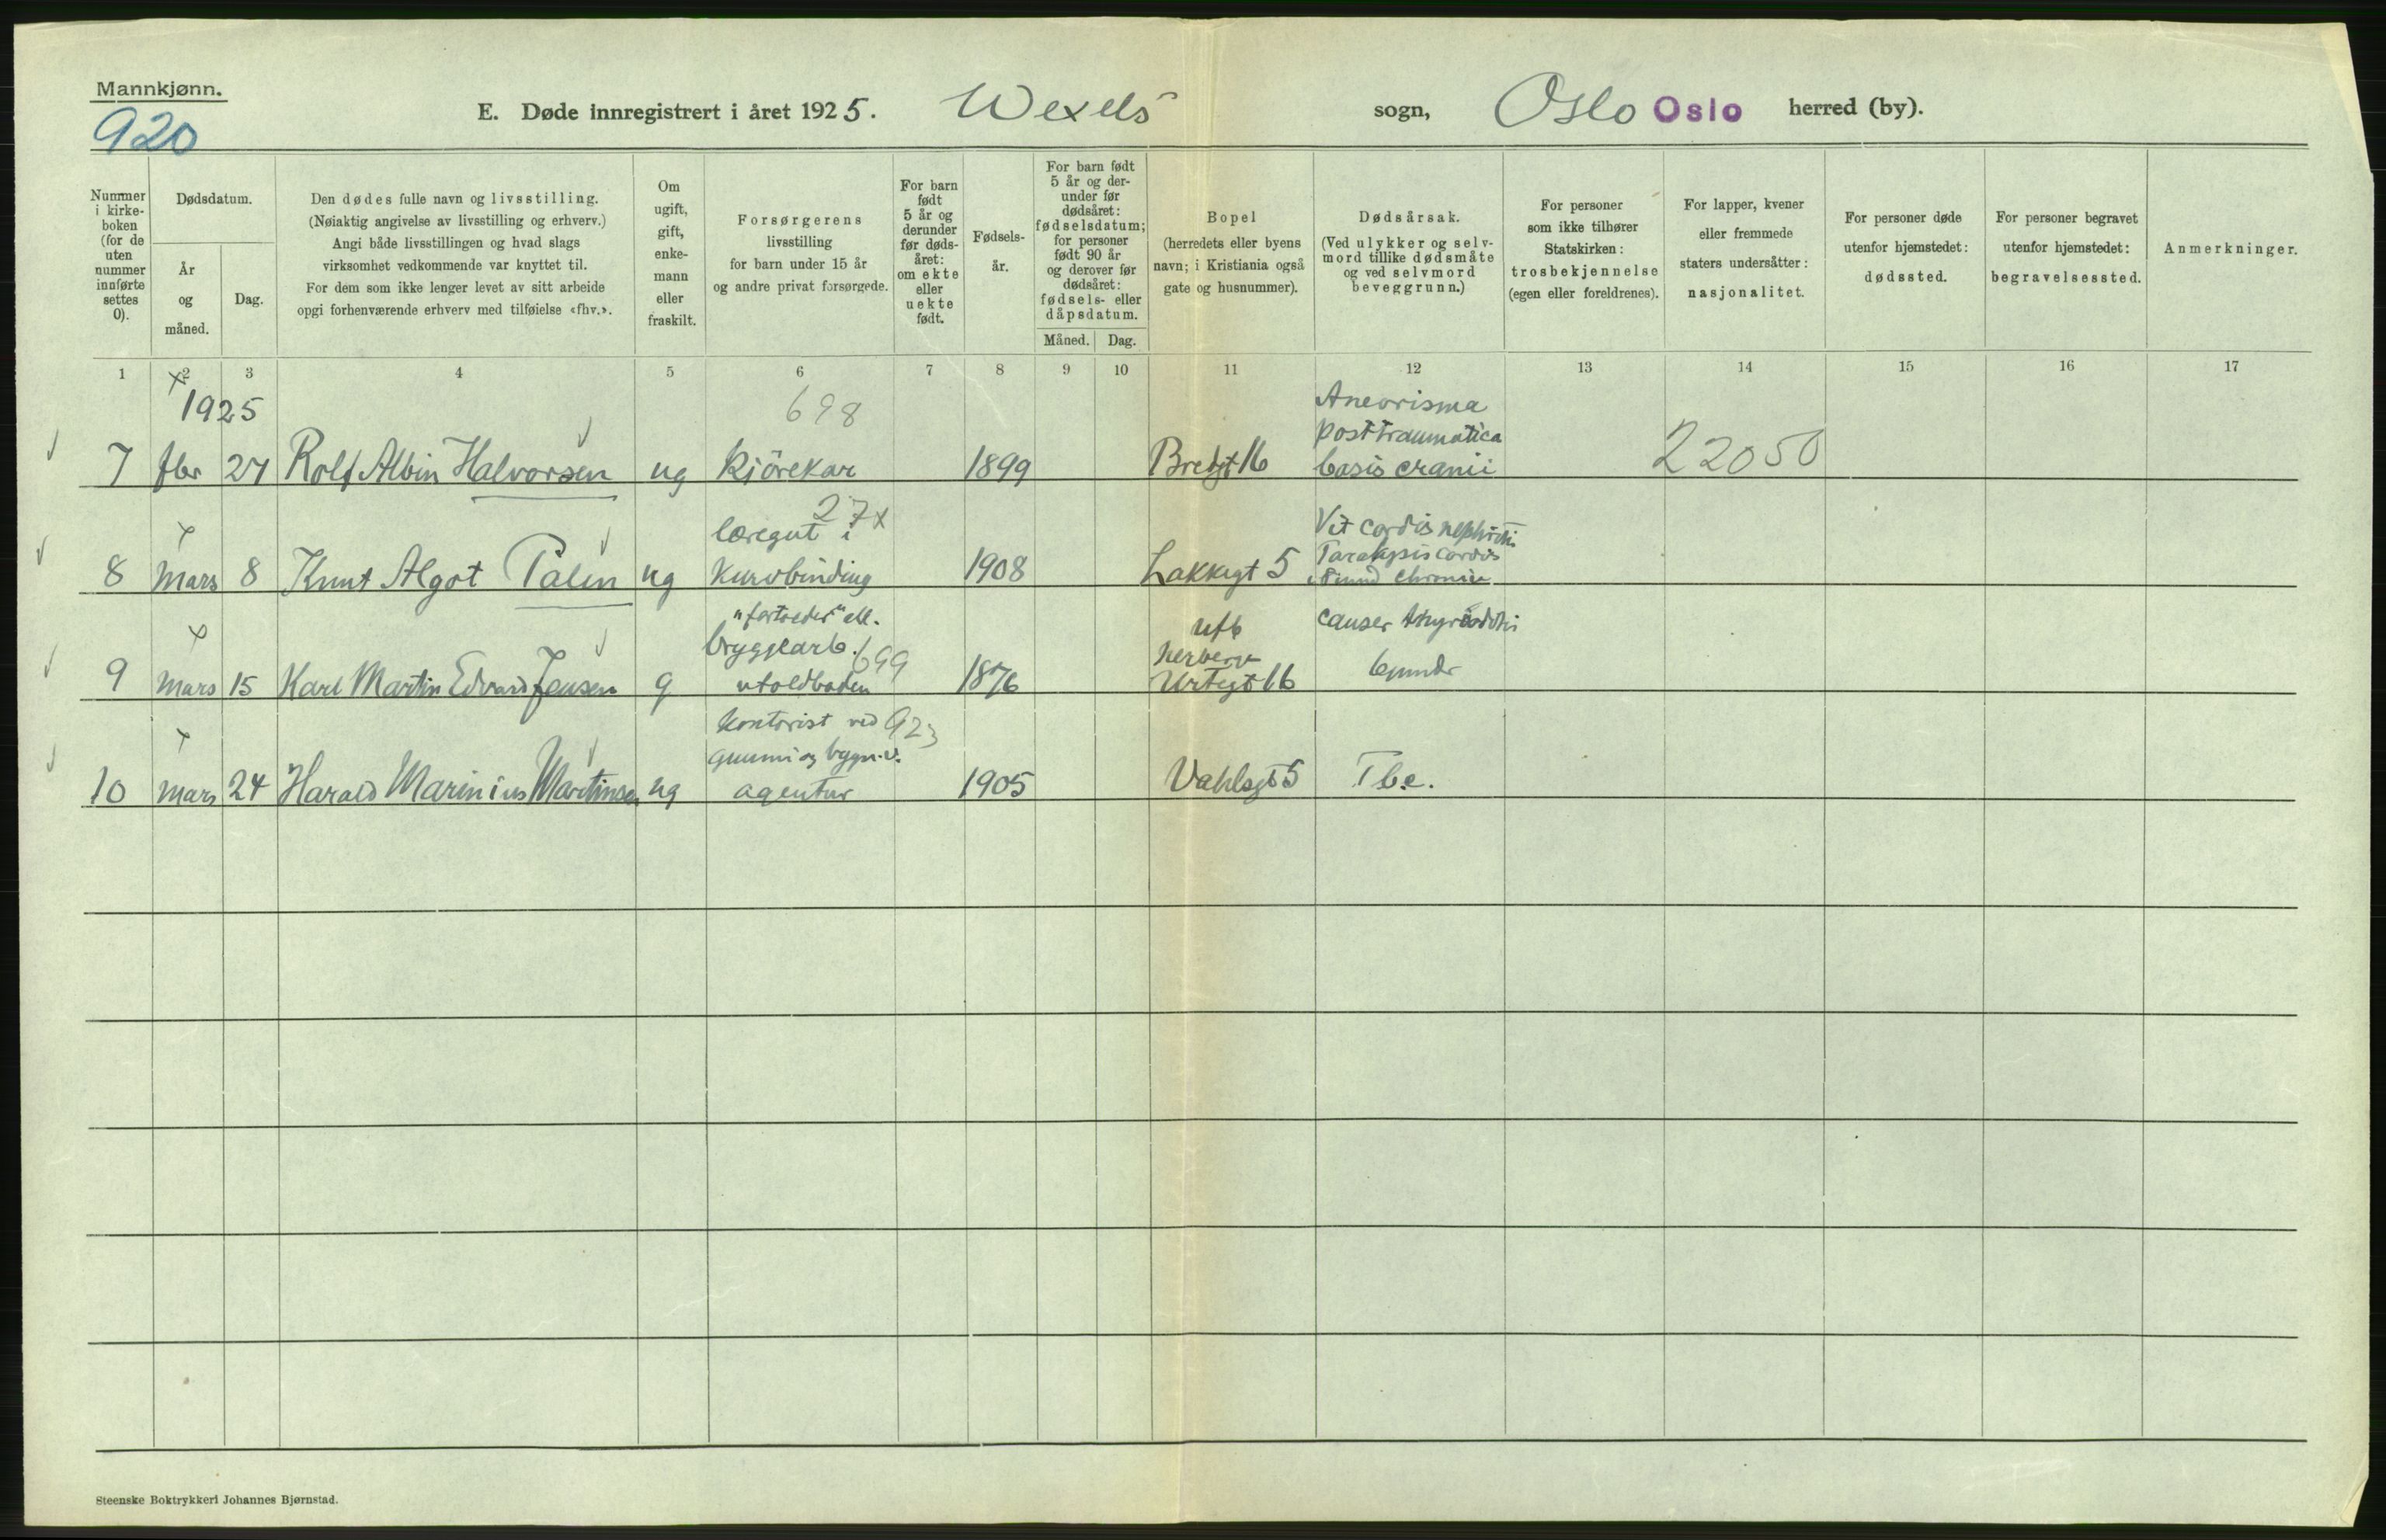 Mannkjønn.
920
E. Døde innregistrert i året 1925. Wexels sogn, Oslo Oslo herred (by).
Nummer i kirke-boken (for de uten nummer innførte settes 0).
Dødsdatum.
År og måned.
Dag.
Den dødes fulle navn og livsstilling.
(Nøiaktig angivelse av livsstilling og erhverv.)
Angi både livsstillingen og hvad slags
virksomhet vedkommende var knyttet til.
For dem som ikke lenger levet av sitt arbeide
opgi forhenværende erhverv med tilføielse «fhv.».
Om ugift, gift, enke-mann eller fraskilt.
Forsørgerens
livsstilling
for barn under 15 år
og andre privat forsørgede.
For barn født 5 år og derunder før døds-året: om ekte eller uekte født.
Fødsels-år.
For barn født 5 år og der-under før dødsåret: fødselsdatum; for personer født 90 år og derover før dødsåret: fødsels- eller dåpsdatum.
Måned.
Dag.
Bopel
(herredets eller byens
navn; i Kristiania også
gate og husnummer).
Dødsårsak.
(Ved ulykker og selv-
mord tillike dødsmåte
og ved selvmord
beveggrunn.)
For personer
som ikke tilhører
Statskirken:
trosbekjennelse
(egen eller foreldrenes).
For lapper, kvener
eller fremmede
staters undersåtter:
nasjonalitet.
For personer døde
utenfor hjemstedet:
dødssted.
For personer begravet
utenfor hjemstedet:
begravelsessted.
Anmerkninger.
1 2 3 4 5 6 7 8 9 10 11 12 13 14 15 16 17
1925
698
Aneorisma
posttraumatica
7 fbr 27 Rolf Albin Halvorsen ug Kjörekar 1899 Bredgt 16 basis cranii 22050
27x
læregut i
Vit cordis
Paralysis cordis
8 mars 8 Knut Algot Palin ug Kurvbinding 1908 Lakkegt 5
bryggearb. 699
causer
herberge
9 mars 15 Karl Martin Edvard Jensen g toldboden 1876 Urtegt 16
kontorist ved 923
gummi og
10 mars 24 Harald Marinius Martinsen ug agentur 1905 Vahlsgt 5 Tbc.
Steenske Boktrykkeri Johannes Bjørnstad.